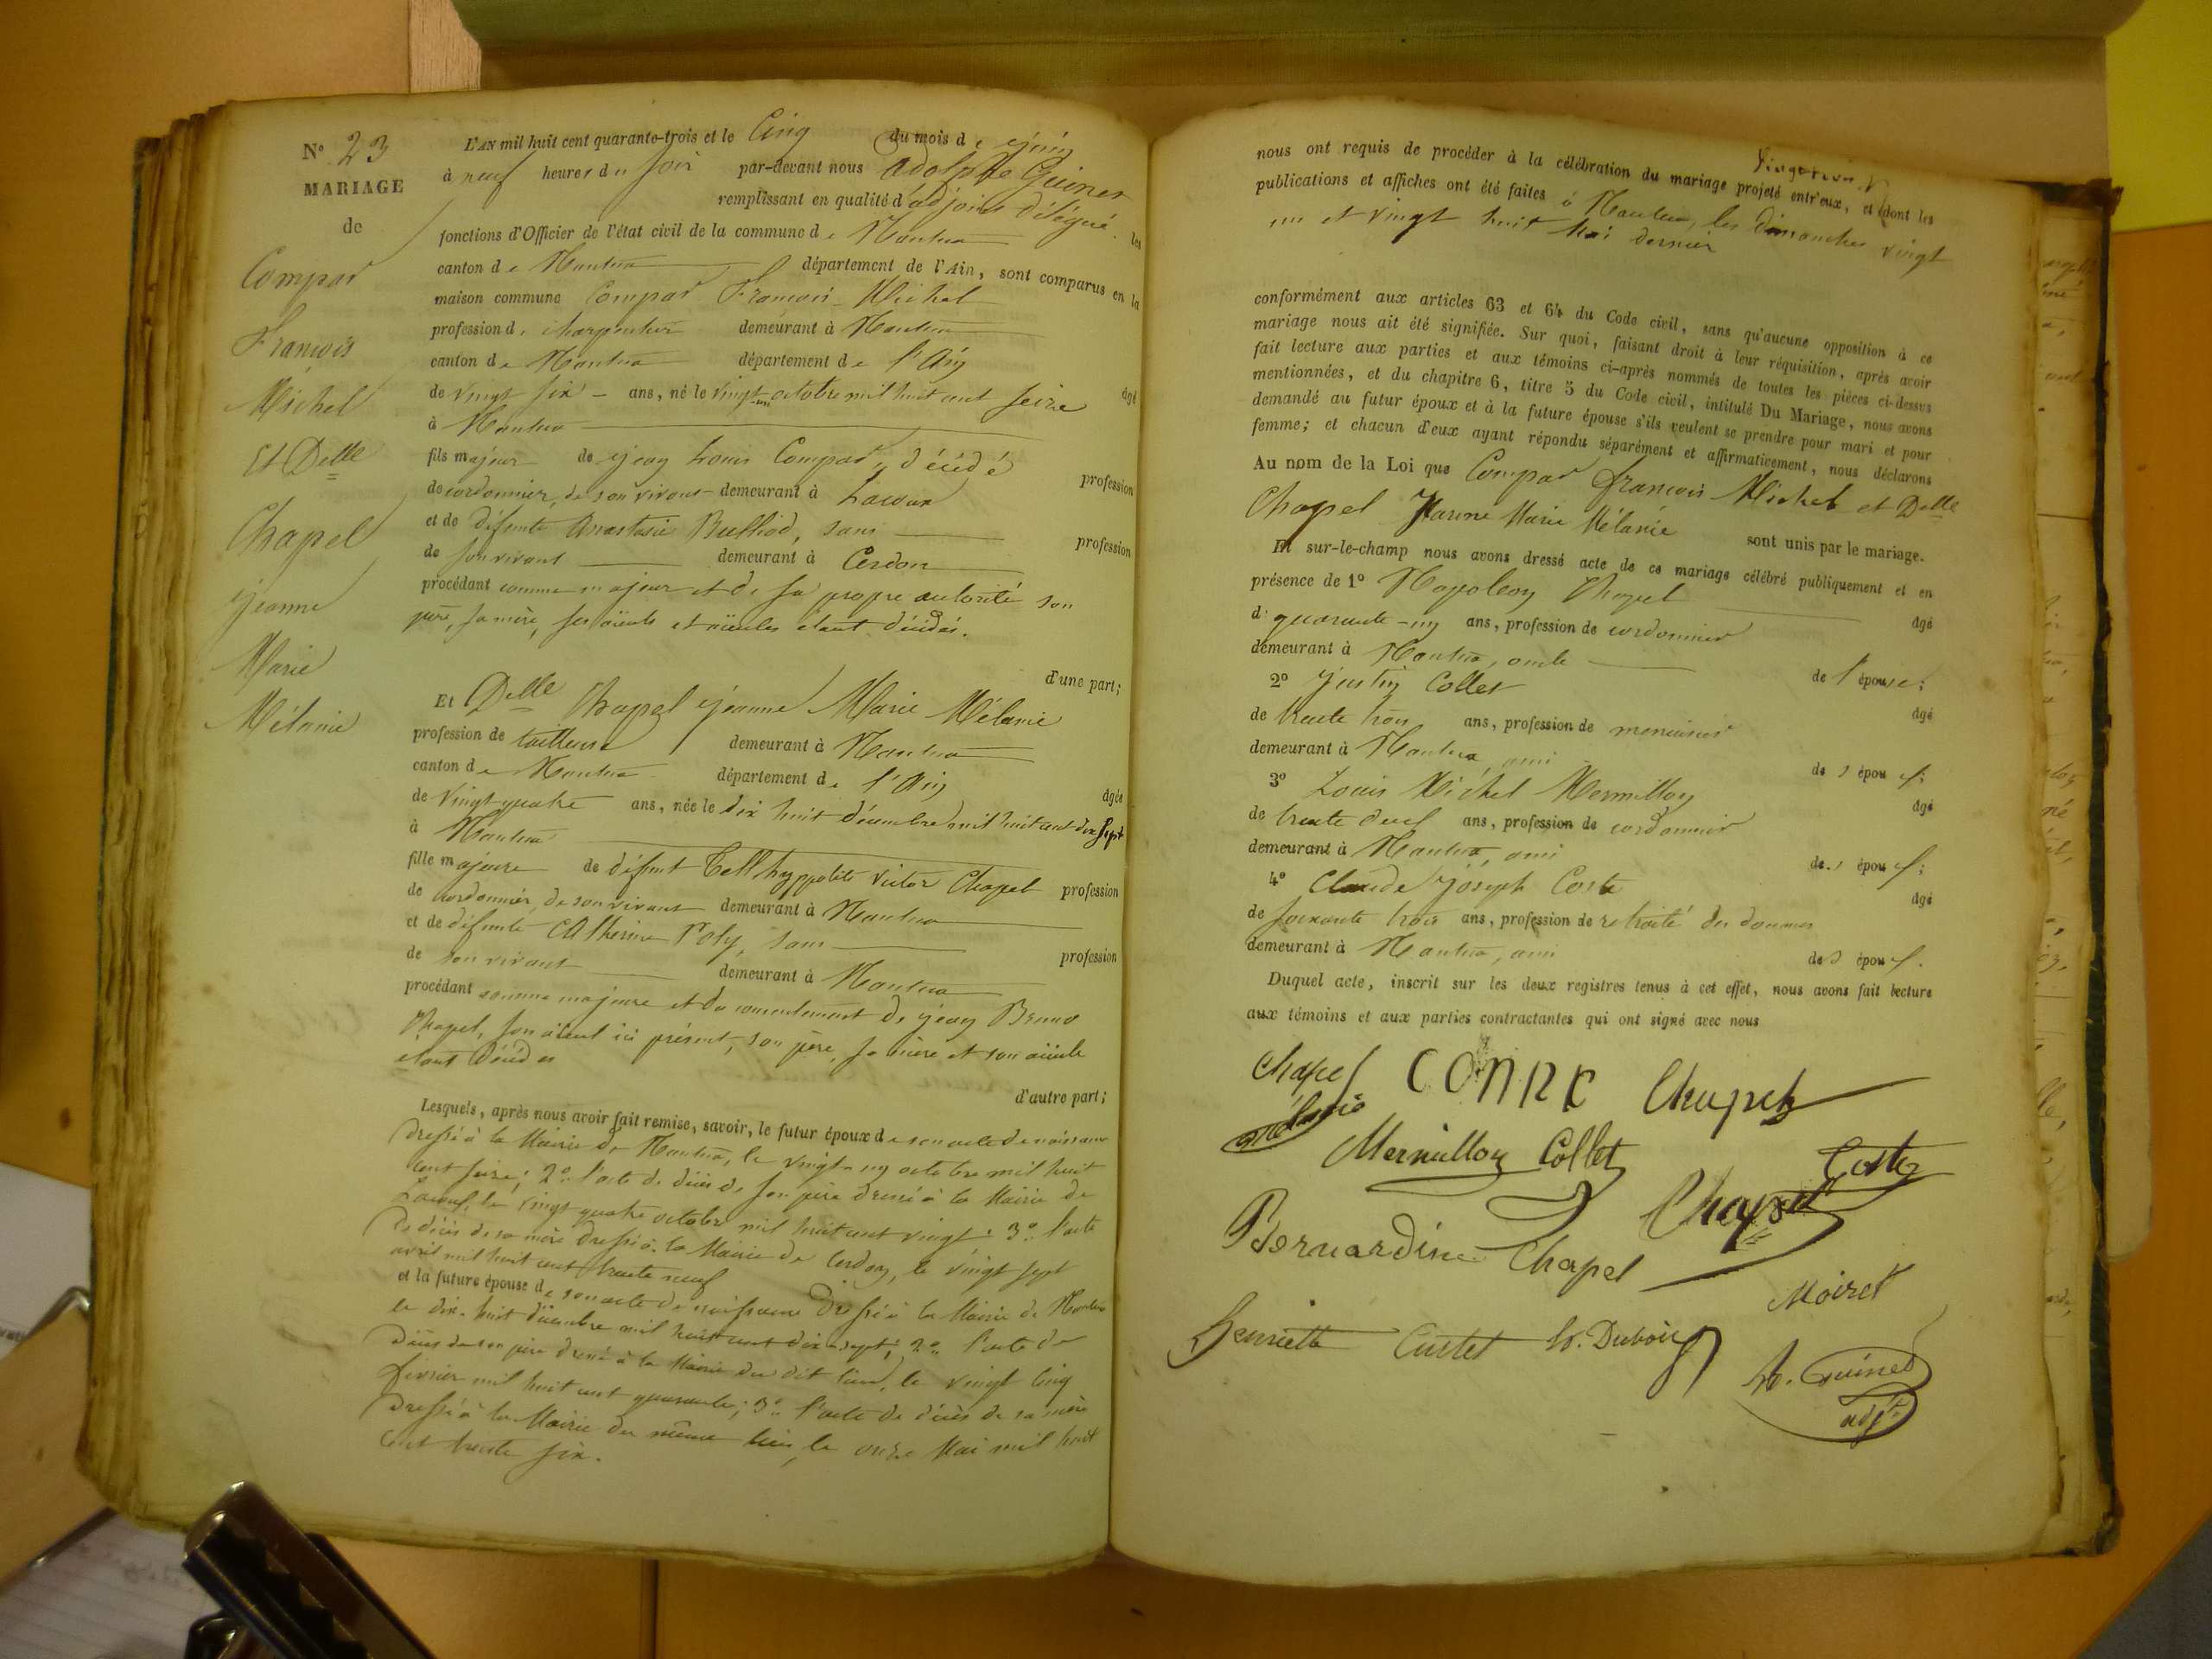 N° 23
MARIAGE
de
Compar
François
Michel
Et Delle
Chapel
jeanne
Marie
Mélanie
L'AN mil huit cent quarante-trois et le Cinq du mois de juin
à neuf heures du soir par-devant nous Adolphe Guinet
remplissant en qualité d'adjoint délégué les
fonctions d'Officier de l'état civil de la commune de Nantua
canton de Nantua département de l'Ain, sont comparus en la
maison commune Compar François Michel
profession de charpentier demeurant à Nantua
canton de Nantua département de l'Ain âgé
de vingt six ans, né le vingt-un octobre mil huit cent seize
à Nantua
fils majeur de jean Louis Compar, décédé profession
de cordonnier, de son vivant demeurant à Lacoux
et de défunte Anastasie Bulliod, sans profession
de son vivant demeurant à Cerdon
procédant comme majeur et de sa propre autorité son
père, sa mère, ses aïeuls et aïeules étant décédés.
d'une part;
Et Delle Chapel jeanne Marie Mélanie
profession de tailleuse demeurant à Nantua
canton de Nantua département de l'Ain âgée
de vingt quatre ans, née le dix huit décembre mil huit cent dix sept
à Nantua
fille majeure de défunt Tell hyppolite victor Chapel profession
de cordonnier, de son vivant demeurant à Nantua
et de défunte Catherine Poly, sans profession
de son vivant demeurant à Nantua
procédant comme majeure et du consentement de jean Bruno
Chapel, son aïeul ici présent, son père, sa mère et son aïeule
étant décédés
d'autre part;
Lesquels, après nous avoir fait remise, savoir, le futur époux de son acte de naissance
dressé à la Mairie de Nantua, le vingt-un octobre mil huit
cent seize; 2° l'acte de décès de son père dressé à la Mairie de
Lacoux, le vingt quatre octobre mil huit cent vingt; 3° l'acte
de décès de sa mère dressé à la Mairie de Cerdon, le vingt sept
avril mil huit cent trente neuf
et la future épouse de son acte de naissance dressé à la Mairie de Nantua
le dix-huit décembre mil huit cent dix-sept; 2° l'acte de
décès de son père dressé à la Mairie du dit lieu, le vingt cinq
février mil huit cent quarante; 3° l'acte de décès de sa mère
dressé à la Mairie du même lieu, le onze Mai mil huit
cent trente six.
nous ont requis de procéder à la célébration du mariage projeté entr'eux, et dont les
publications et affiches ont été faites à Nantua, les dimanches vingt
un et vingt huit Mai dernier
conformément aux articles 63 et 64 du Code civil, sans qu'aucune opposition à ce
mariage nous ait été signifiée. Sur quoi, faisant droit à leur réquisition, après avoir
fait lecture aux parties et aux témoins ci-après nommés de toutes les pièces ci-dessus
mentionnées, et du chapitre 6, titre 5 du Code civil, intitulé Du Mariage, nous avons
demandé au futur époux et à la future épouse s'ils veulent se prendre pour mari et pour
femme; et chacun d'eux ayant répondu séparément et affirmativement, nous déclarons
Au nom de la Loi que Compar françois Michel et Delle
Chapel Jeanne Marie Mélanie sont unis par le mariage.
Et sur-le-champ nous avons dressé acte de ce mariage célébré publiquement et en
présence de 1° Napoléon Chapel âgé
de quarante-un ans, profession de cordonnier
demeurant à Nantua, oncle de l'épouse;
2° Justin Collet âgé
de trente trois ans, profession de menuisier
demeurant à Nantua, ami des époux;
3° Louis Michel Mermillon âgé
de trente deux ans, profession de cordonnier
demeurant à Nantua, ami des époux;
4° Claude Joseph Coste âgé
de soixante trois ans, profession de retraité des douanes
demeurant à Nantua, ami des époux.
Duquel acte, inscrit sur les deux registres tenus à cet effet, nous avons fait lecture
aux témoins et aux parties contractantes qui ont signé avec nous
Chapel Chapel
Mélanie
Mermillon Collet Coste
Chapel
Bernardine Chapel
Moiret
henriette Custet h. Dubois
A. Guinet
adjt